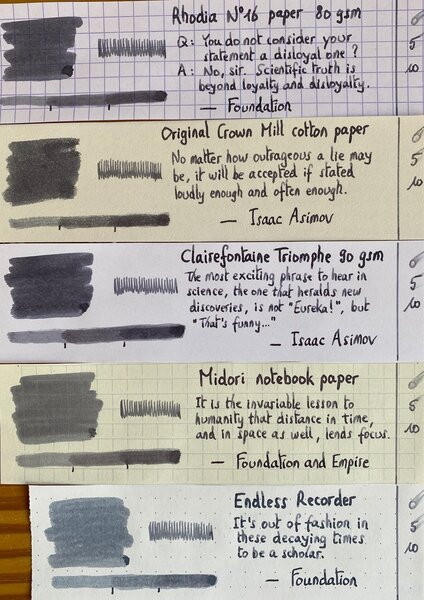 Rhodia N°16 paper 80 gsm
Q: You do not consider your
statement a disloyal one?
A: No, sir. Scientific truth is
beyond loyalty and disloyalty.
— Foundation
5
10
Original Crown Mill cotton paper
No matter how outrageous a lie may
be, it will be accepted if stated
loudly enough and often enough.
— Isaac Asimov
5
10
Clairefontaine Triomphe 90 gsm
The most exciting phrase to hear in
science, the one that heralds new
discoveries, is not "Eureka!", but
"That's funny..."
— Isaac Asimov
5
10
Midori notebook paper
It is the invariable lesson to
humanity that distance in time,
and in space as well, lends focus.
— Foundation and Empire
5
10
Endless Recorder
It's out of fashion in
these decaying times
to be a scholar.
— Foundation
5
10